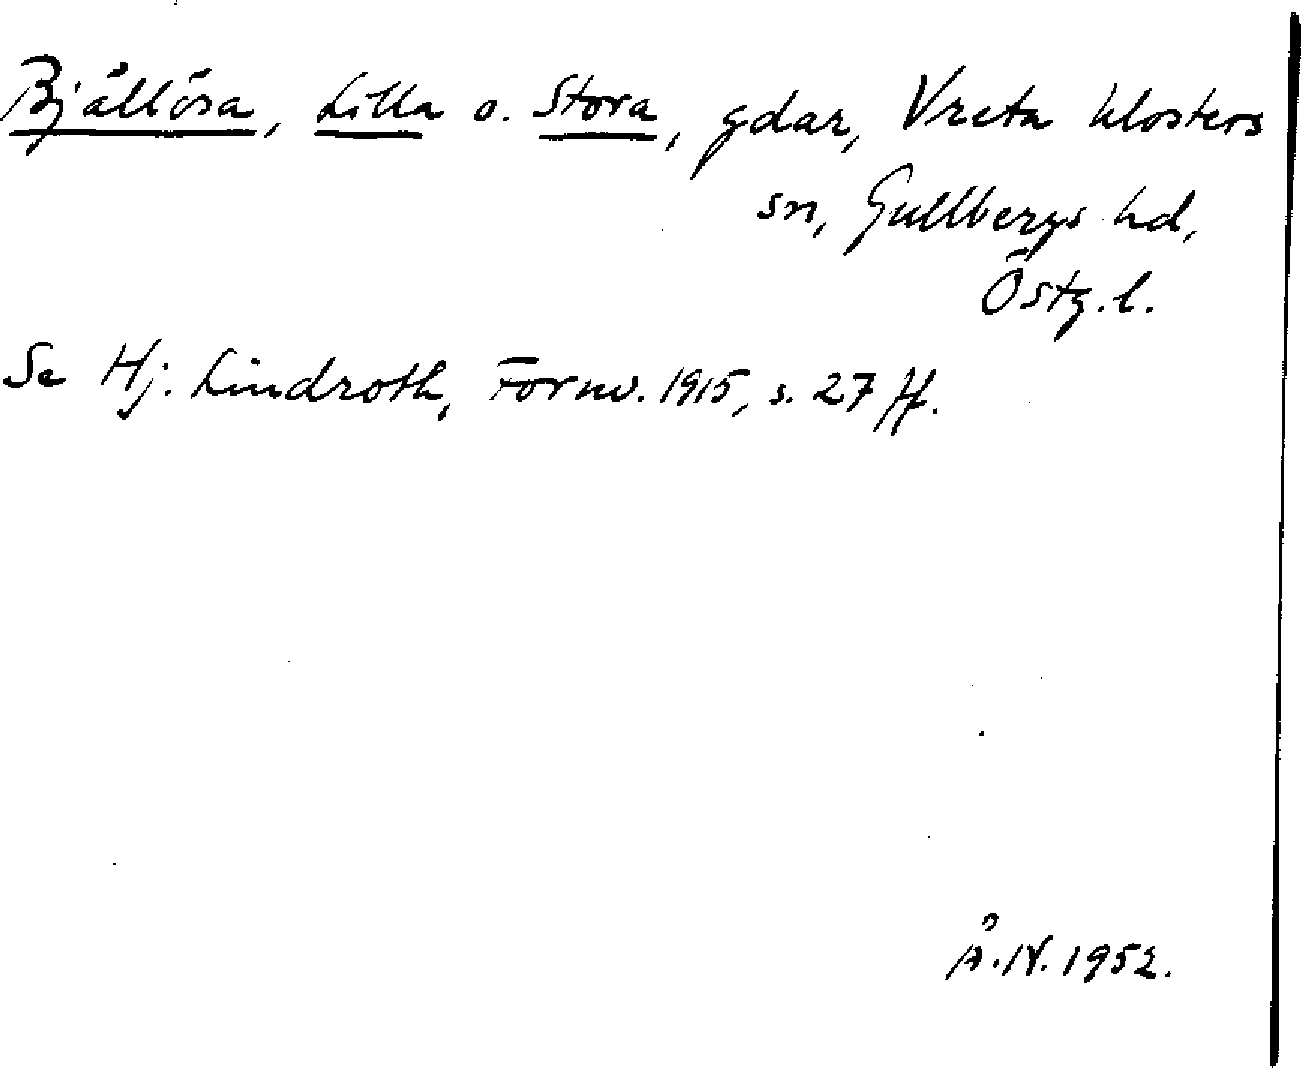 Bjällösa, Lilla o. Stora, gdar, Vreta klosters
sn, Gullbergs hd,
Östg.l.
Se Hj. Lindroth, Fornv. 1915, s. 27 ff.
Å.N. 1952.